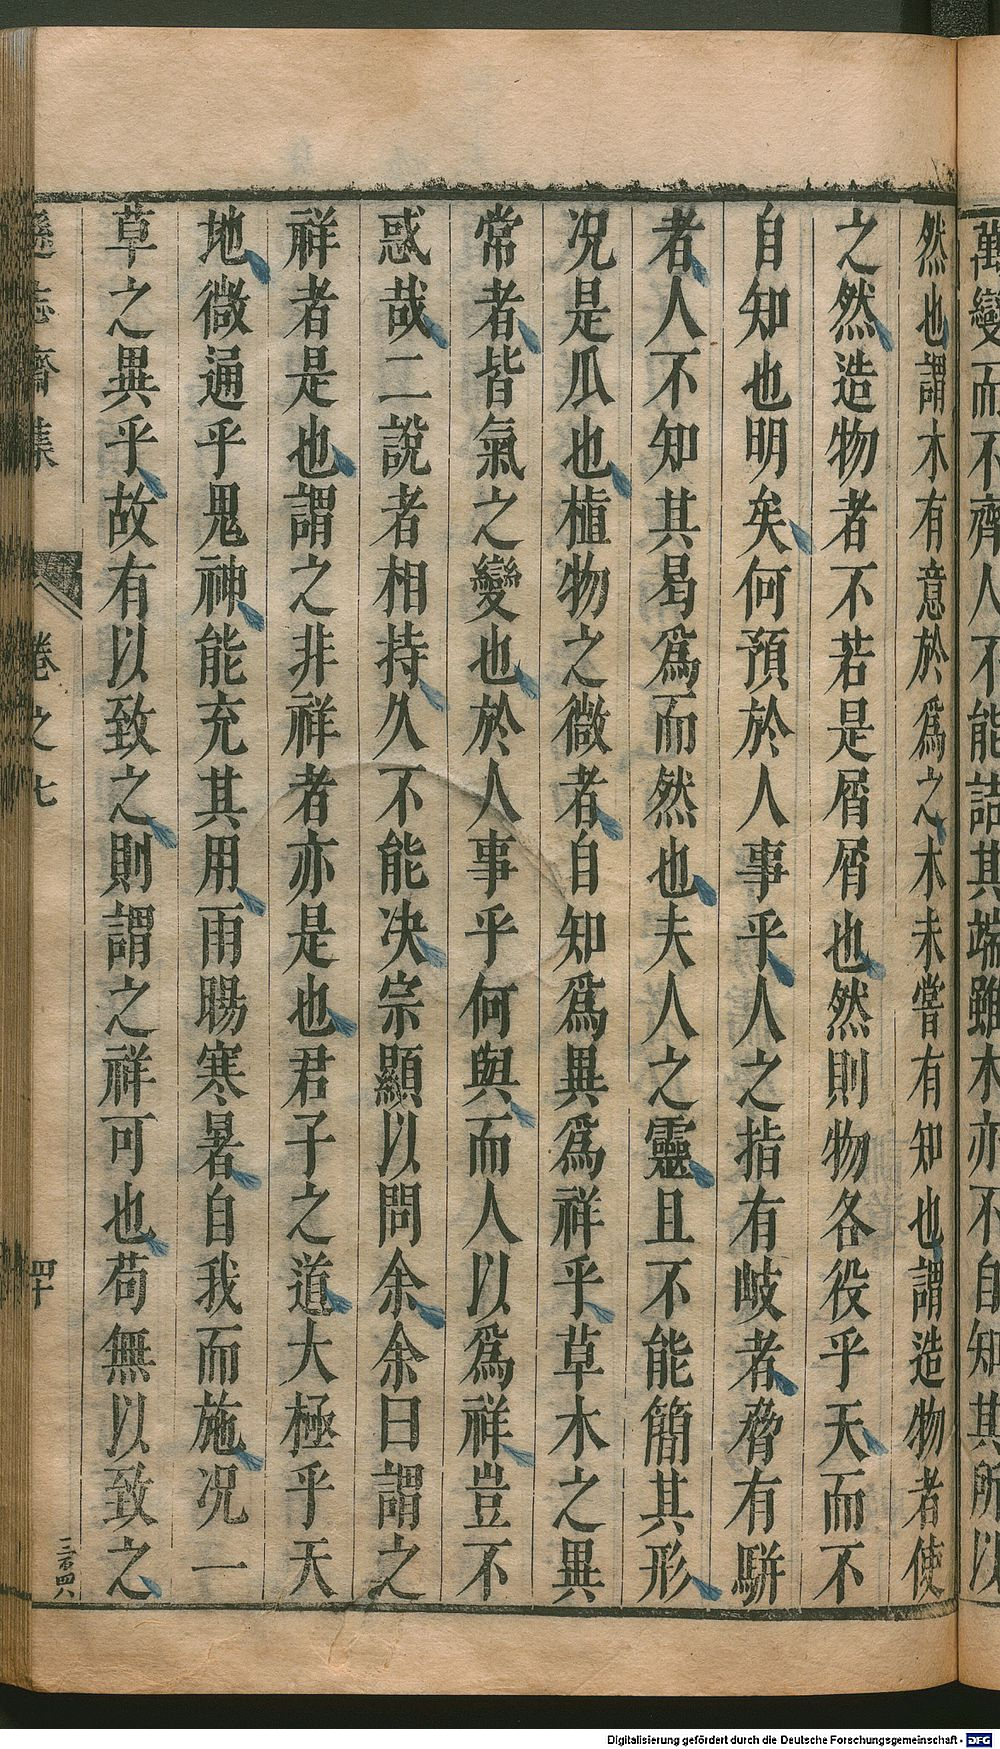 萬變而不齊人不能詰其端雖木亦不自知其所以
然也謂木有意於爲之木未嘗有知也謂造物者使
之然造物者不若是屑屑也然則物各役乎天而不
自知也明矣何預於人事乎人之指有岐者脅有駢
者人不知其曷爲而然也夫人之靈且不能簡其形
况是瓜也植物之微者自知爲異爲祥乎草木之異
常者皆氣之變也於人事乎何與而人以爲祥豈不
惑哉二說者相持久不能决宗顯以問余余曰謂之
祥者是也謂之非祥者亦是也君子之道大極乎天
地微通乎鬼神能充其用雨暘寒暑自我而施况一
草之異乎故有以致之則謂之祥可也苟無以致之
遜志齋集 卷之七 四十
二百四八
Digitalisierung gefördert durch die Deutsche Forschungsgemeinschaft - DFG